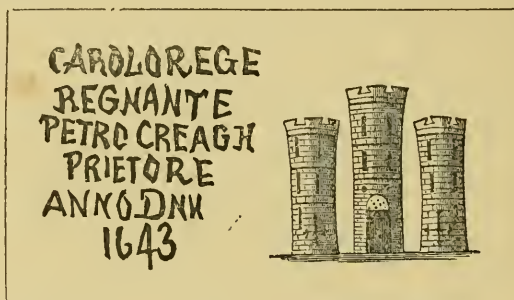 CAROLOREGE
REGNANTE
PETRO CREAGH
PRIETORE
ANNO DNN
1643